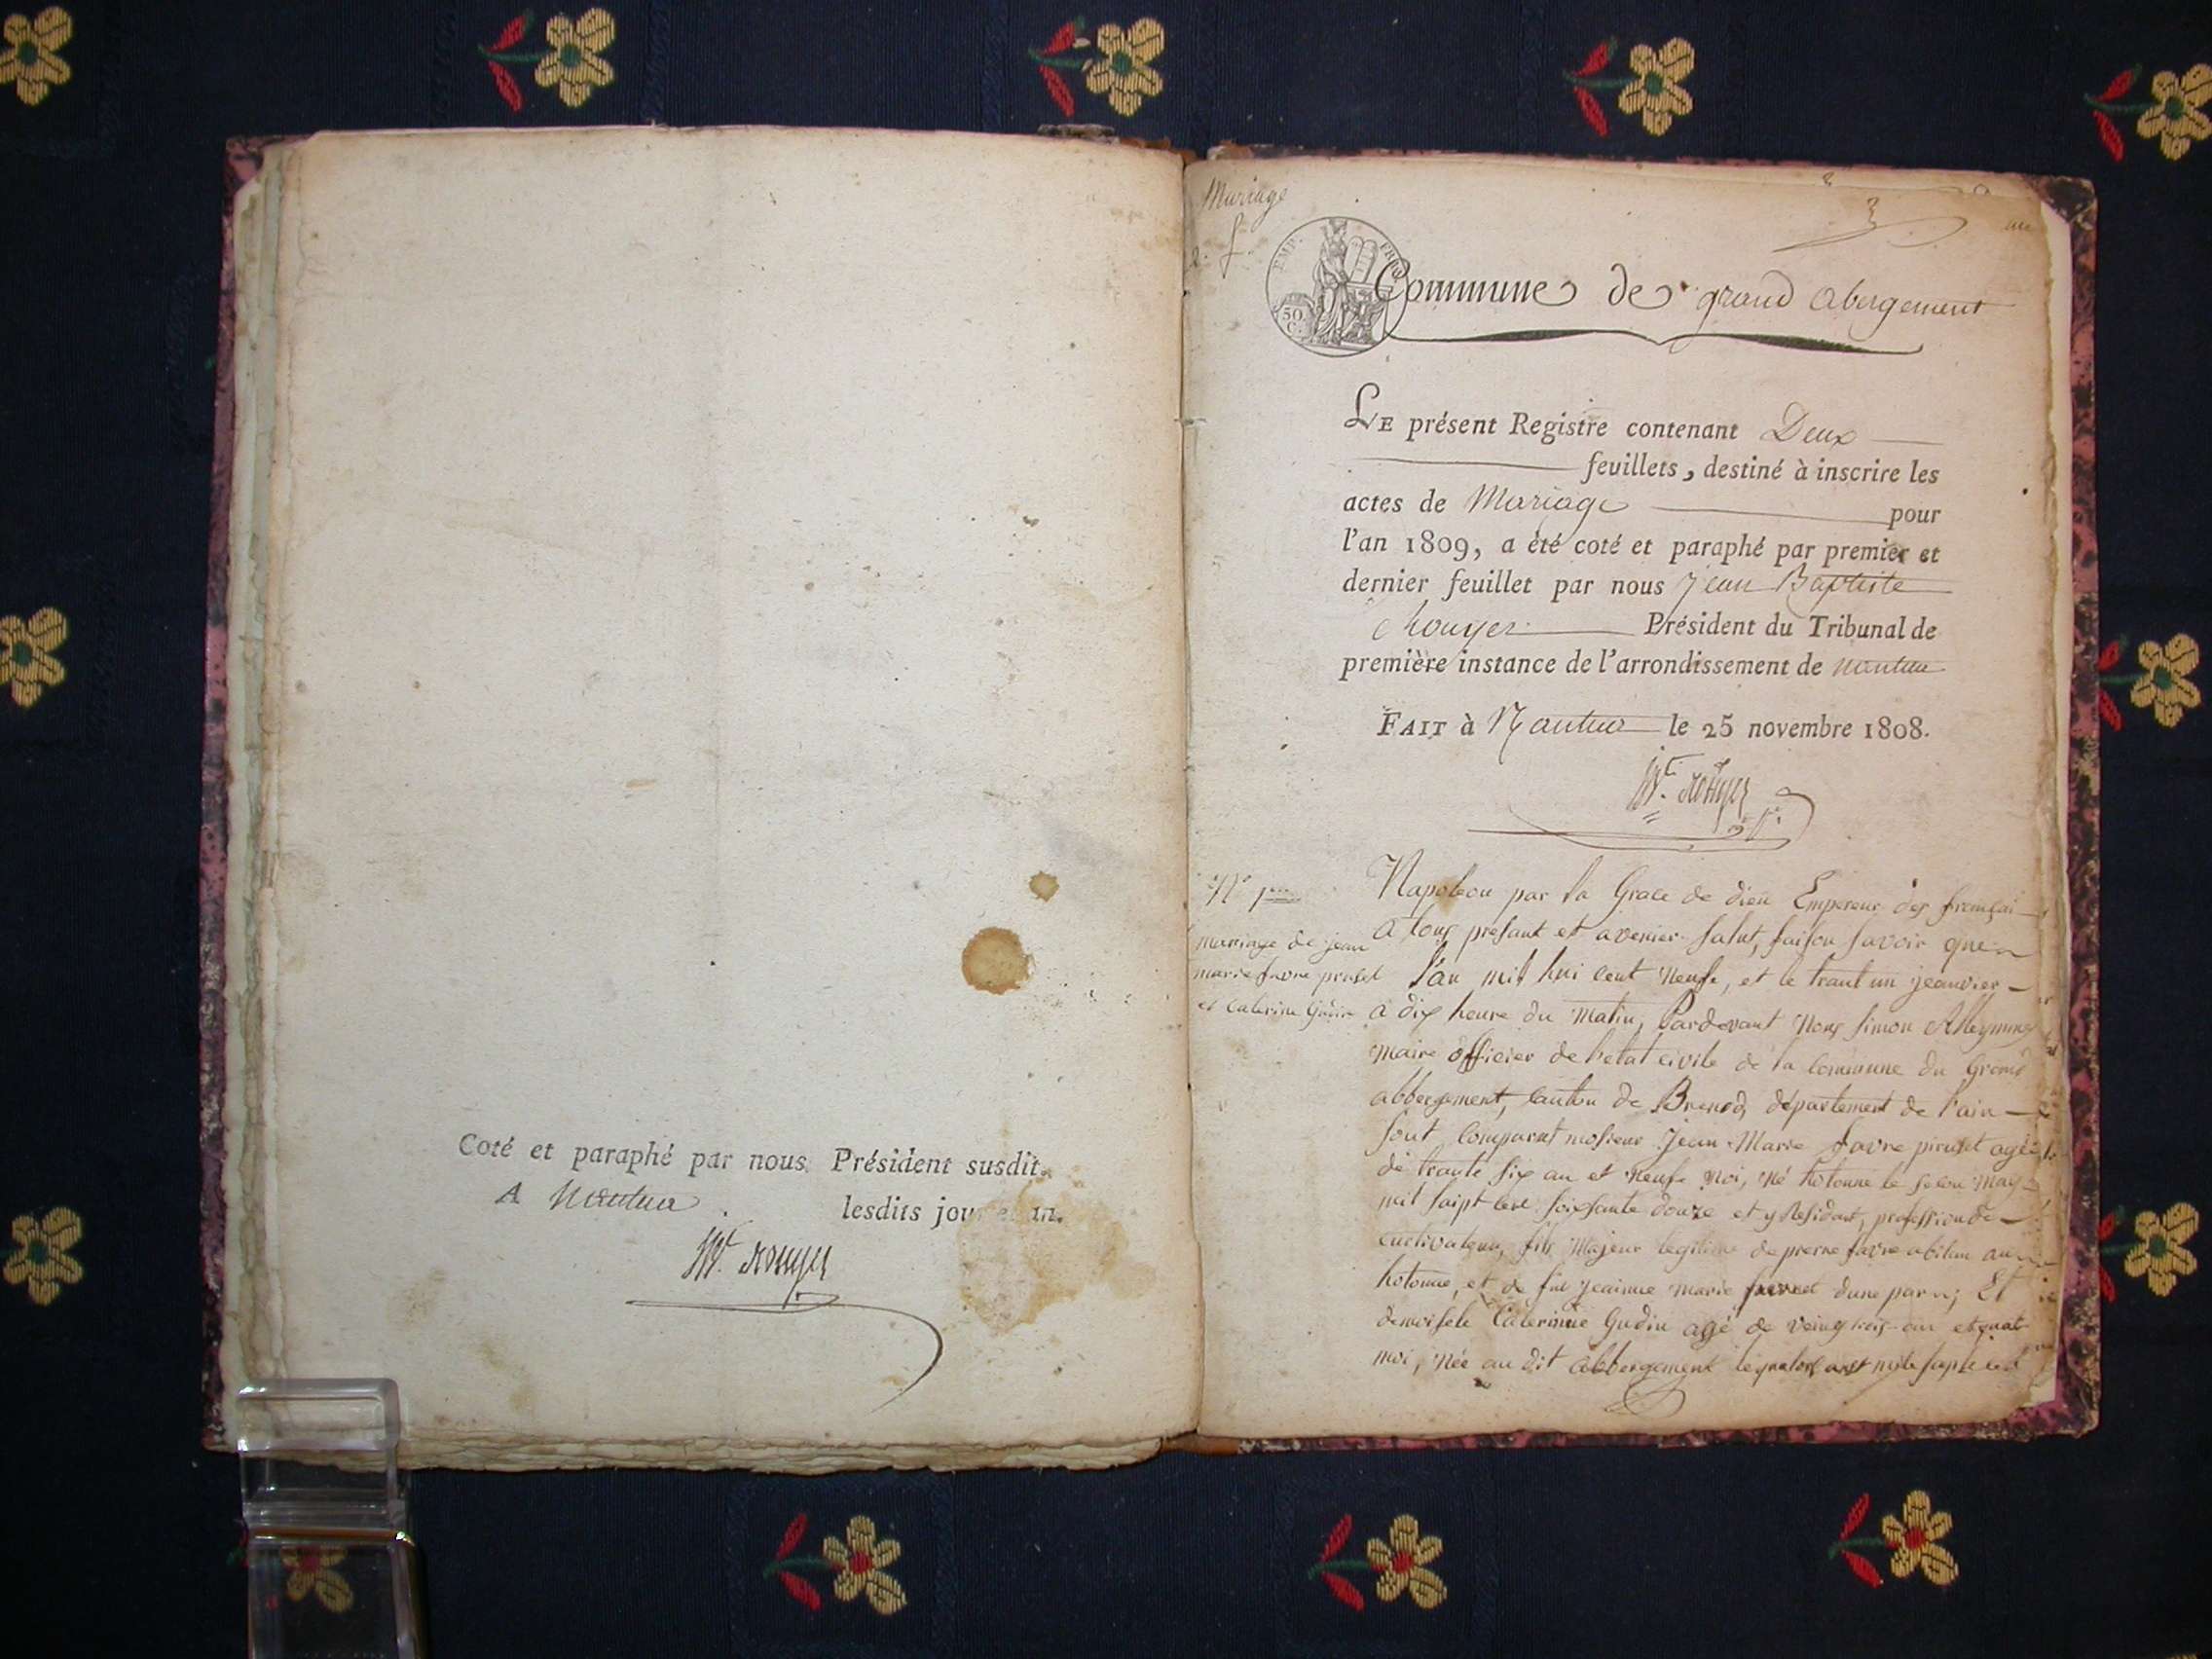 Coté et paraphé par nous Président susdit.
A Nantua lesdits jour et an.
Mt. Rouyer
Mariage
EMP. FRES
50 C.
Commune de grand abergement
LE présent Registre contenant Deux
feuillets, destiné à inscrire les
actes de Mariage pour
l'an 1809, a été coté et paraphé par premier et
dernier feuillet par nous Jean Baptiste
Rouyer Président du Tribunal de
première instance de l'arrondissement de nantua
FAIT à Nantua le 25 novembre 1808.
Mt. Rouyer
N° 1
mariage de jean
marie favre
et Caterine Gudin
Napoleon par la Grace de dieu Empereur des françai
A tous presant et avenier salut, faison savoir que
l'an mil hui cent neufe, et le trant un jeanvier
a dix heure du matin, Pardevant Nous simon
maire officier de l'etat civile de la commune du Grand
abbergement, canton de Brenod, département de l'ain
sont comparut mosieur Jean Marie favre agé
de trante six an et neufe moi, né hotonne le May
mil saipt cent soixsante douze et y Residant, profession de
cultivateur, fils Majeur legitime de pierre favre abitan au
hotonne, et de jeainne marie dune par; Et
demoisele Caterinne Gudin agé de veing trois an et quat
moi, née au dit abbergement